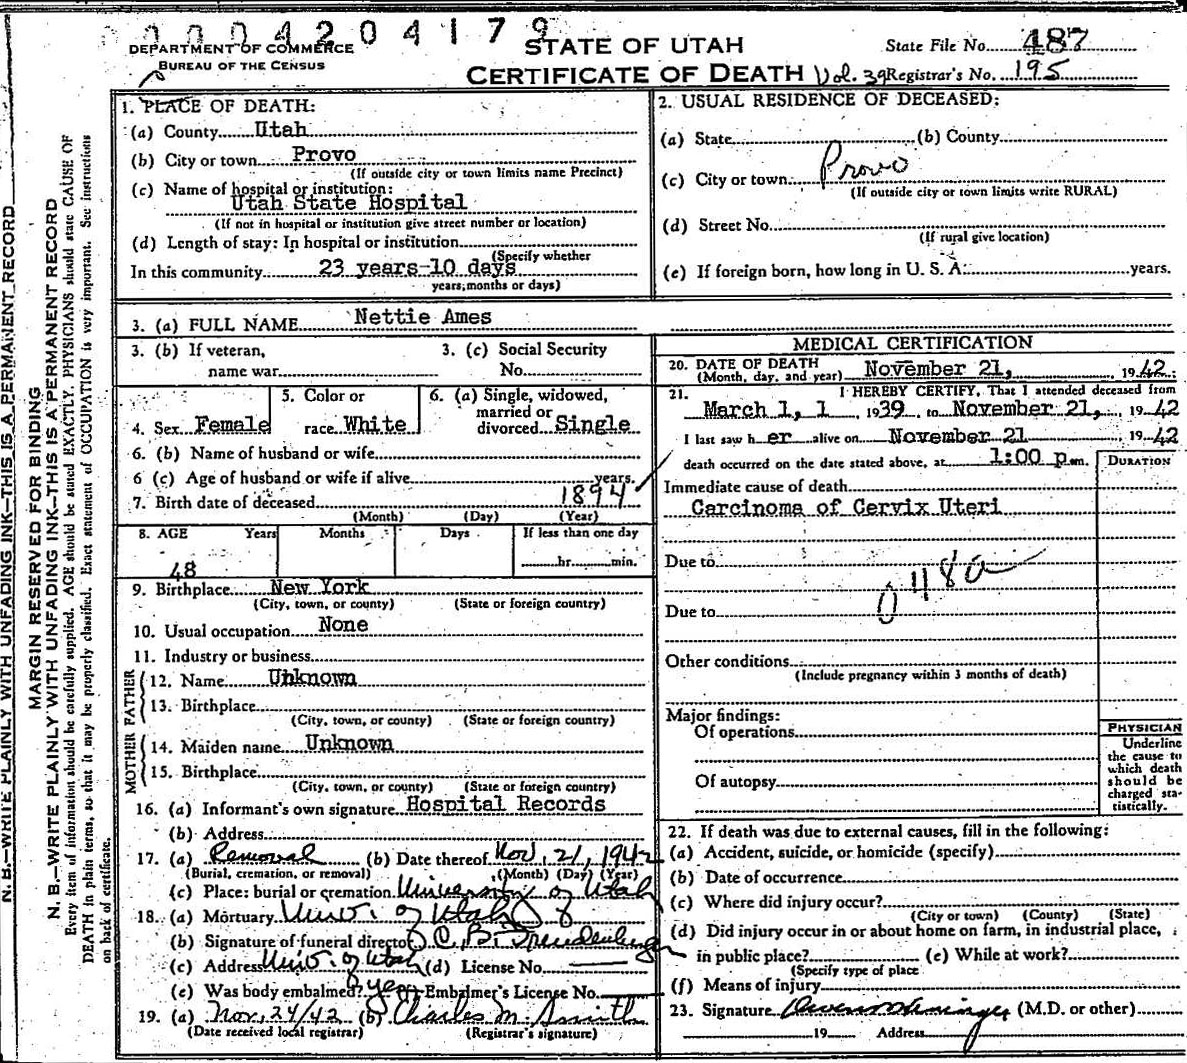 0004204179
DEPARTMENT OF COMMERCE
BUREAU OF THE CENSUS
STATE OF UTAH
CERTIFICATE OF DEATH Vol. 39
State File No. 487
Registrar's No. 195
N. B.—WRITE PLAINLY WITH UNFADING INK—THIS IS A PERMANENT RECORD
MARGIN RESERVED FOR BINDING
N. B.—WRITE PLAINLY WITH UNFADING INK—THIS IS A PERMANENT RECORD
Every item of information should be carefully supplied. AGE should be stated EXACTLY. PHYSICIANS should state CAUSE OF
DEATH in plain terms, so that it may be properly classified. Exact statement of OCCUPATION is very important. See instructions
on back of certificate.
1. PLACE OF DEATH:
(a) County Utah
(b) City or town Provo
(If outside city or town limits name Precinct)
(c) Name of hospital or institution:
Utah State Hospital
(If not in hospital or institution give street number or location)
(d) Length of stay: In hospital or institution
(Specify whether
In this community 23 years-10 days
years, months or days)
2. USUAL RESIDENCE OF DECEASED:
(a) State (b) County
(c) City or town Provo
(If outside city or town limits write RURAL)
(d) Street No.
(If rural give location)
(e) If foreign born, how long in U. S. A: years.
3. (a) FULL NAME Nettie Ames
3. (b) If veteran,
name war
3. (c) Social Security
No.
4. Sex Female
5. Color or
race White
6. (a) Single, widowed,
married or
divorced Single
6. (b) Name of husband or wife
6 (c) Age of husband or wife if alive years.
7. Birth date of deceased 1894
(Month) (Day) (Year)
8. AGE Years Months Days If less than one day
48 hr. min.
9. Birthplace New York
(City, town, or county) (State or foreign country)
10. Usual occupation None
11. Industry or business
FATHER
12. Name Unknown
13. Birthplace
(City, town, or county) (State or foreign country)
MOTHER
14. Maiden name Unknown
15. Birthplace
(City, town, or county) (State or foreign country)
16. (a) Informant's own signature Hospital Records
(b) Address
17. (a) Removal (b) Date thereof Nov. 21, 1942
(Burial, cremation, or removal) (Month) (Day) (Year)
(c) Place: burial or cremation University of Utah
18. (a) Mortuary Univ. of Utah
(b) Signature of funeral director C. B.
(c) Address Univ. of Utah (d) License No.
(e) Was body embalmed? yes Embalmer's License No.
19. (a) Nov. 24/42 (b) Charles M. Smith
(Date received local registrar) (Registrar's signature)
MEDICAL CERTIFICATION
20. DATE OF DEATH
(Month, day, and year) November 21, 1942
21. I HEREBY CERTIFY, That I attended deceased from
March 1, 1, 1939 to November 21, 1942
I last saw her alive on November 21 1942
death occurred on the date stated above, at 1:00 p.m.
DURATION
Immediate cause of death
Carcinoma of Cervix Uteri
Due to
048a
Due to
Other conditions
(Include pregnancy within 3 months of death)
Major findings:
Of operations
Of autopsy
PHYSICIAN
Underline
the cause to
which death
should be
charged sta-
tistically.
22. If death was due to external causes, fill in the following:
(a) Accident, suicide, or homicide (specify)
(b) Date of occurrence
(c) Where did injury occur?
(City or town) (County) (State)
(d) Did injury occur in or about home on farm, in industrial place,
in public place? (e) While at work?
(Specify type of place
(f) Means of injury
23. Signature (M.D. or other)
19 Address